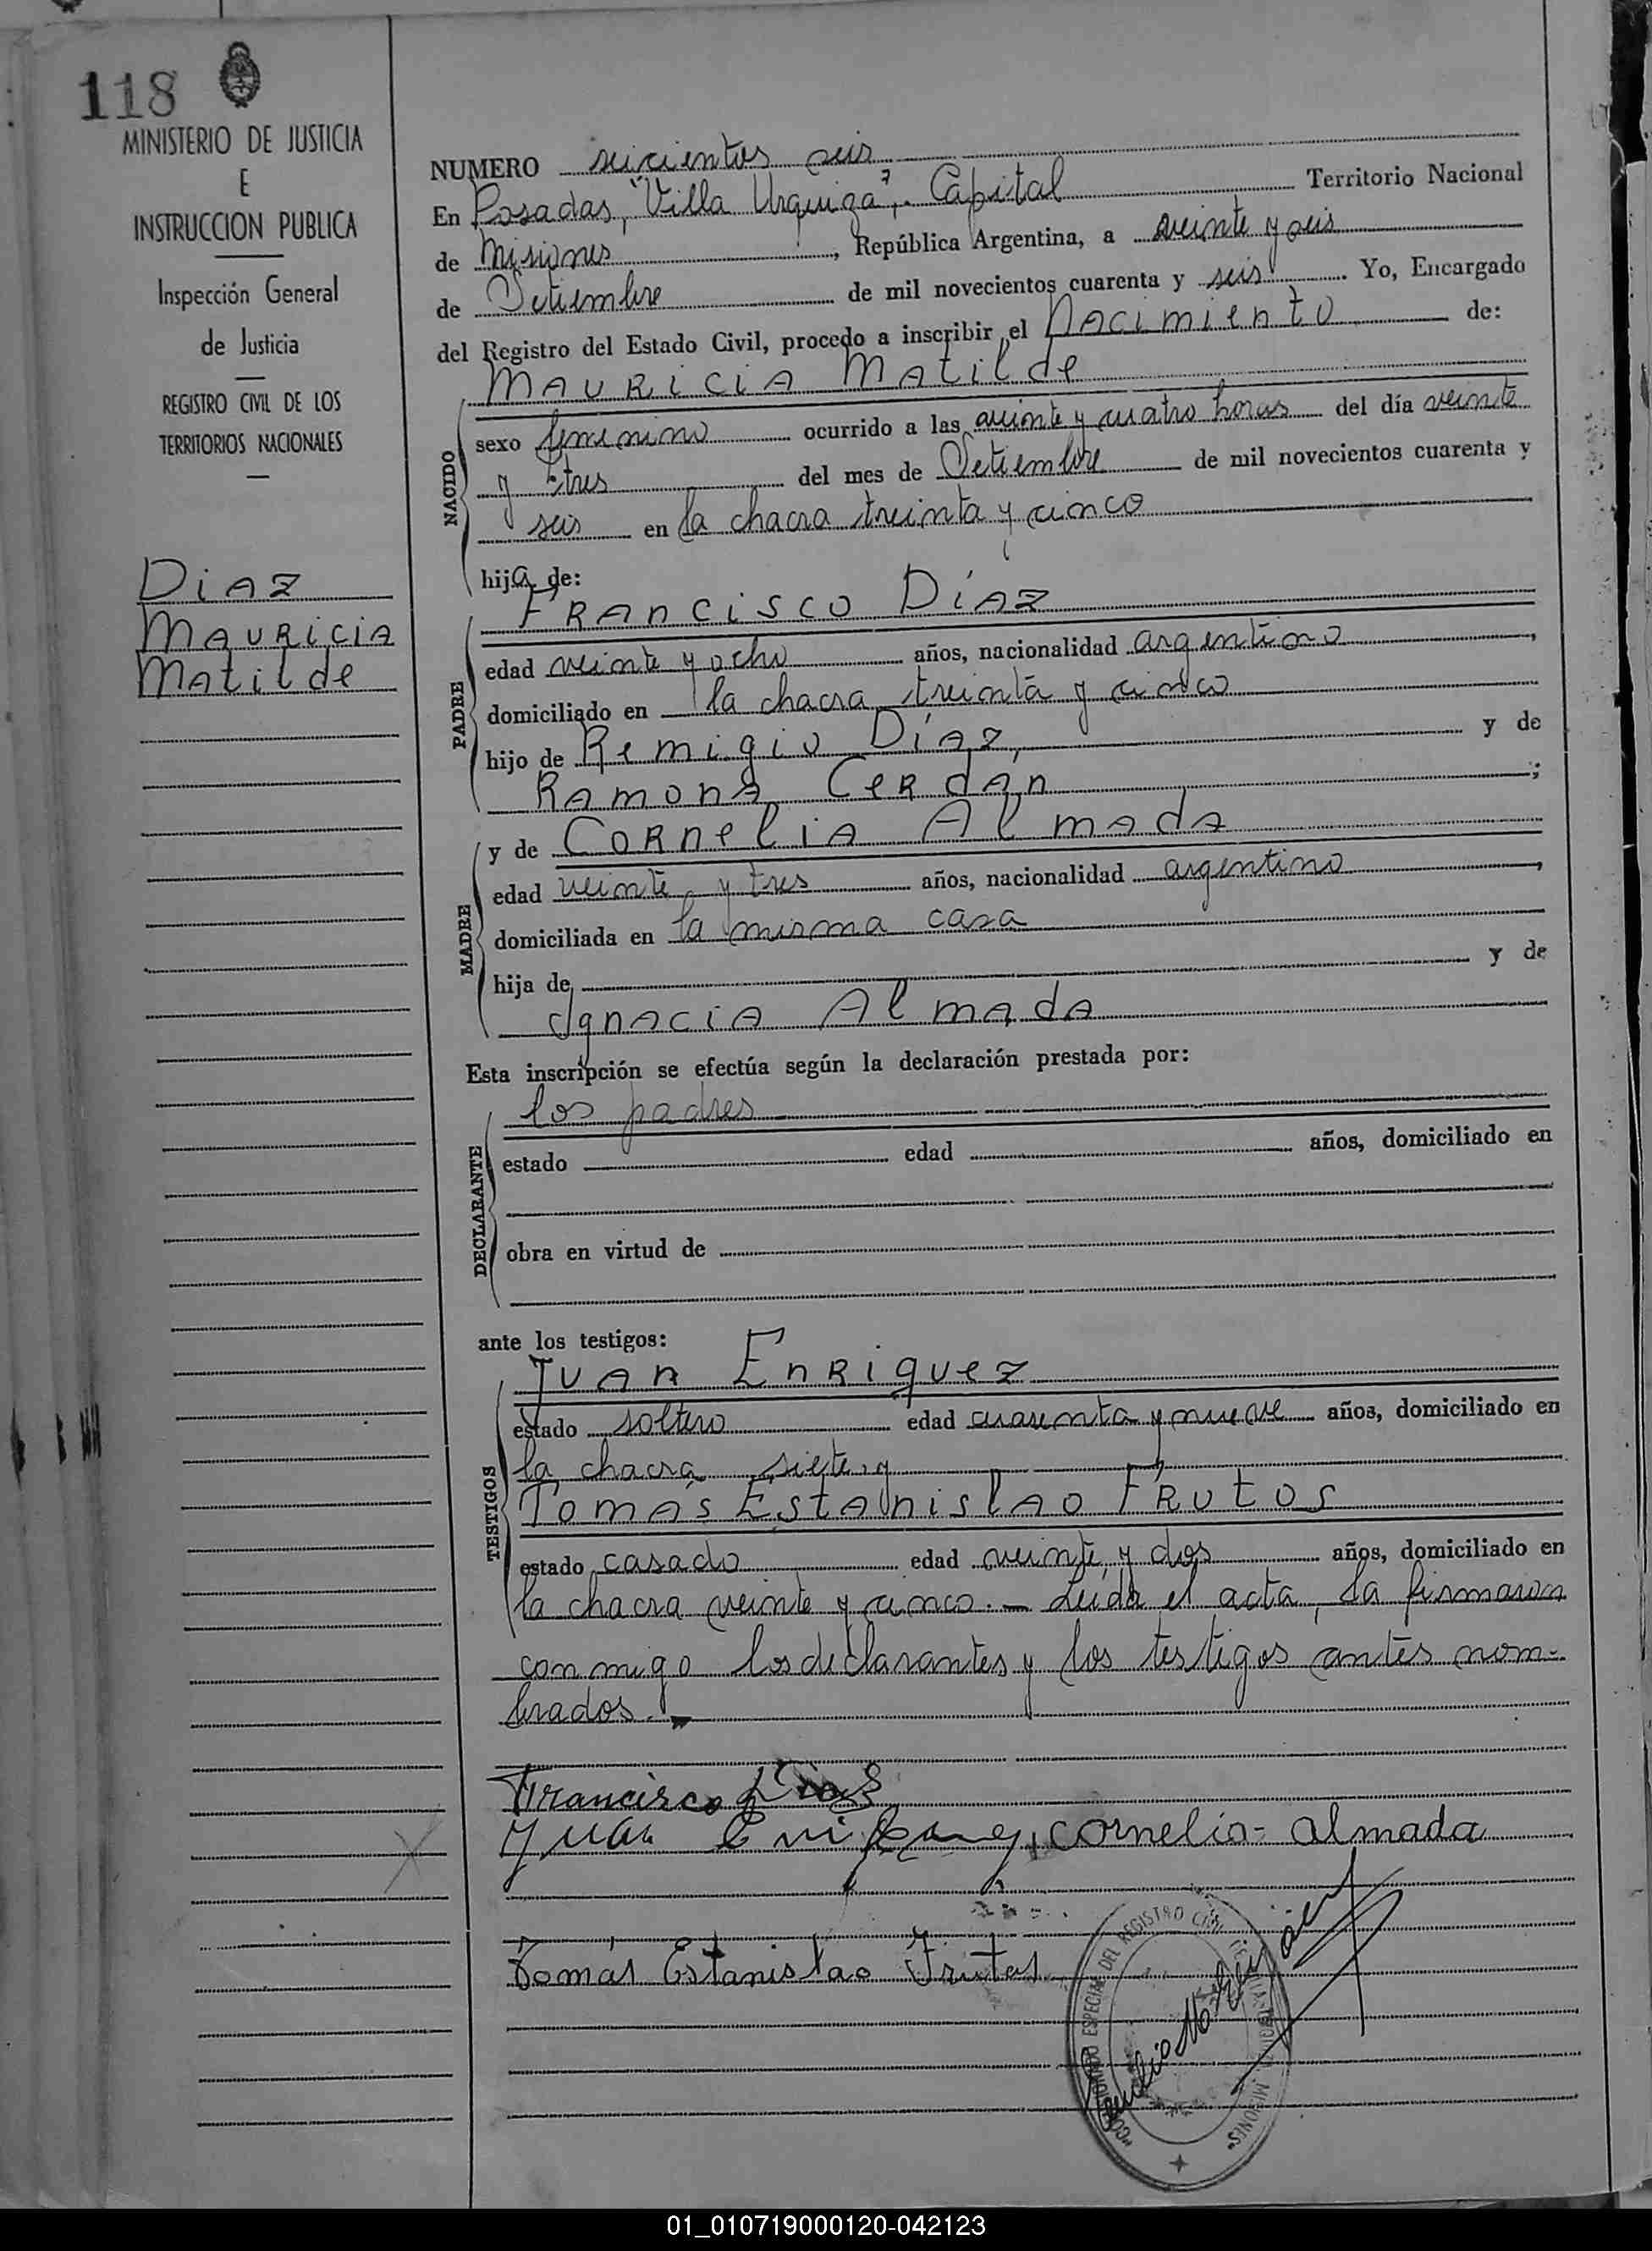 118
MINISTERIO DE JUSTICIA
E
INSTRUCCION PUBLICA
Inspección General
de Justicia
REGISTRO CIVIL DE LOS
TERRITORIOS NACIONALES
Diaz
Mauricia
Matilde
NUMERO seicientos seis
En Posadas, "Villa Urquiza", Capital Territorio Nacional
de Misiones, República Argentina, a veinte y seis
de Setiembre de mil novecientos cuarenta y seis. Yo, Encargado
del Registro del Estado Civil, procedo a inscribir el Nacimiento de:
Mauricia Matilde
NACIDO
sexo femenino ocurrido a las veinte y cuatro horas del día veinte
y tres del mes de Setiembre de mil novecientos cuarenta y
seis en la chacra treinta y cinco
hija de:
Francisco Díaz
PADRE
edad veinte y ocho años, nacionalidad argentino,
domiciliado en la chacra treinta y cinco
hijo de Remigio Díaz, y de
Ramona Cerdan;
y de Cornelia Almada
MADRE
edad veinte y tres años, nacionalidad argentino,
domiciliada en la misma casa
hija de y de
Ignacia Almada
Esta inscripción se efectúa según la declaración prestada por:
los padres
DECLARANTE
estado edad años, domiciliado en
obra en virtud de
ante los testigos:
Juan Enriquez
TESTIGOS
estado soltero edad cuarenta y nueve años, domiciliado en
la chacra siete y
Tomás Estanislao Frutos
estado casado edad veinte y dos años, domiciliado en
la chacra veinte y cinco.- Leída el acta, la firmaron
conmigo los declarantes y los testigos antes nom-
brados.-
Francisco Diaz
Juan cornelia-almada
Tomás Estanislao Frutos
ESPECIAL DEL REGISTRO CIVIL MISIONES
01_010719000120-042123